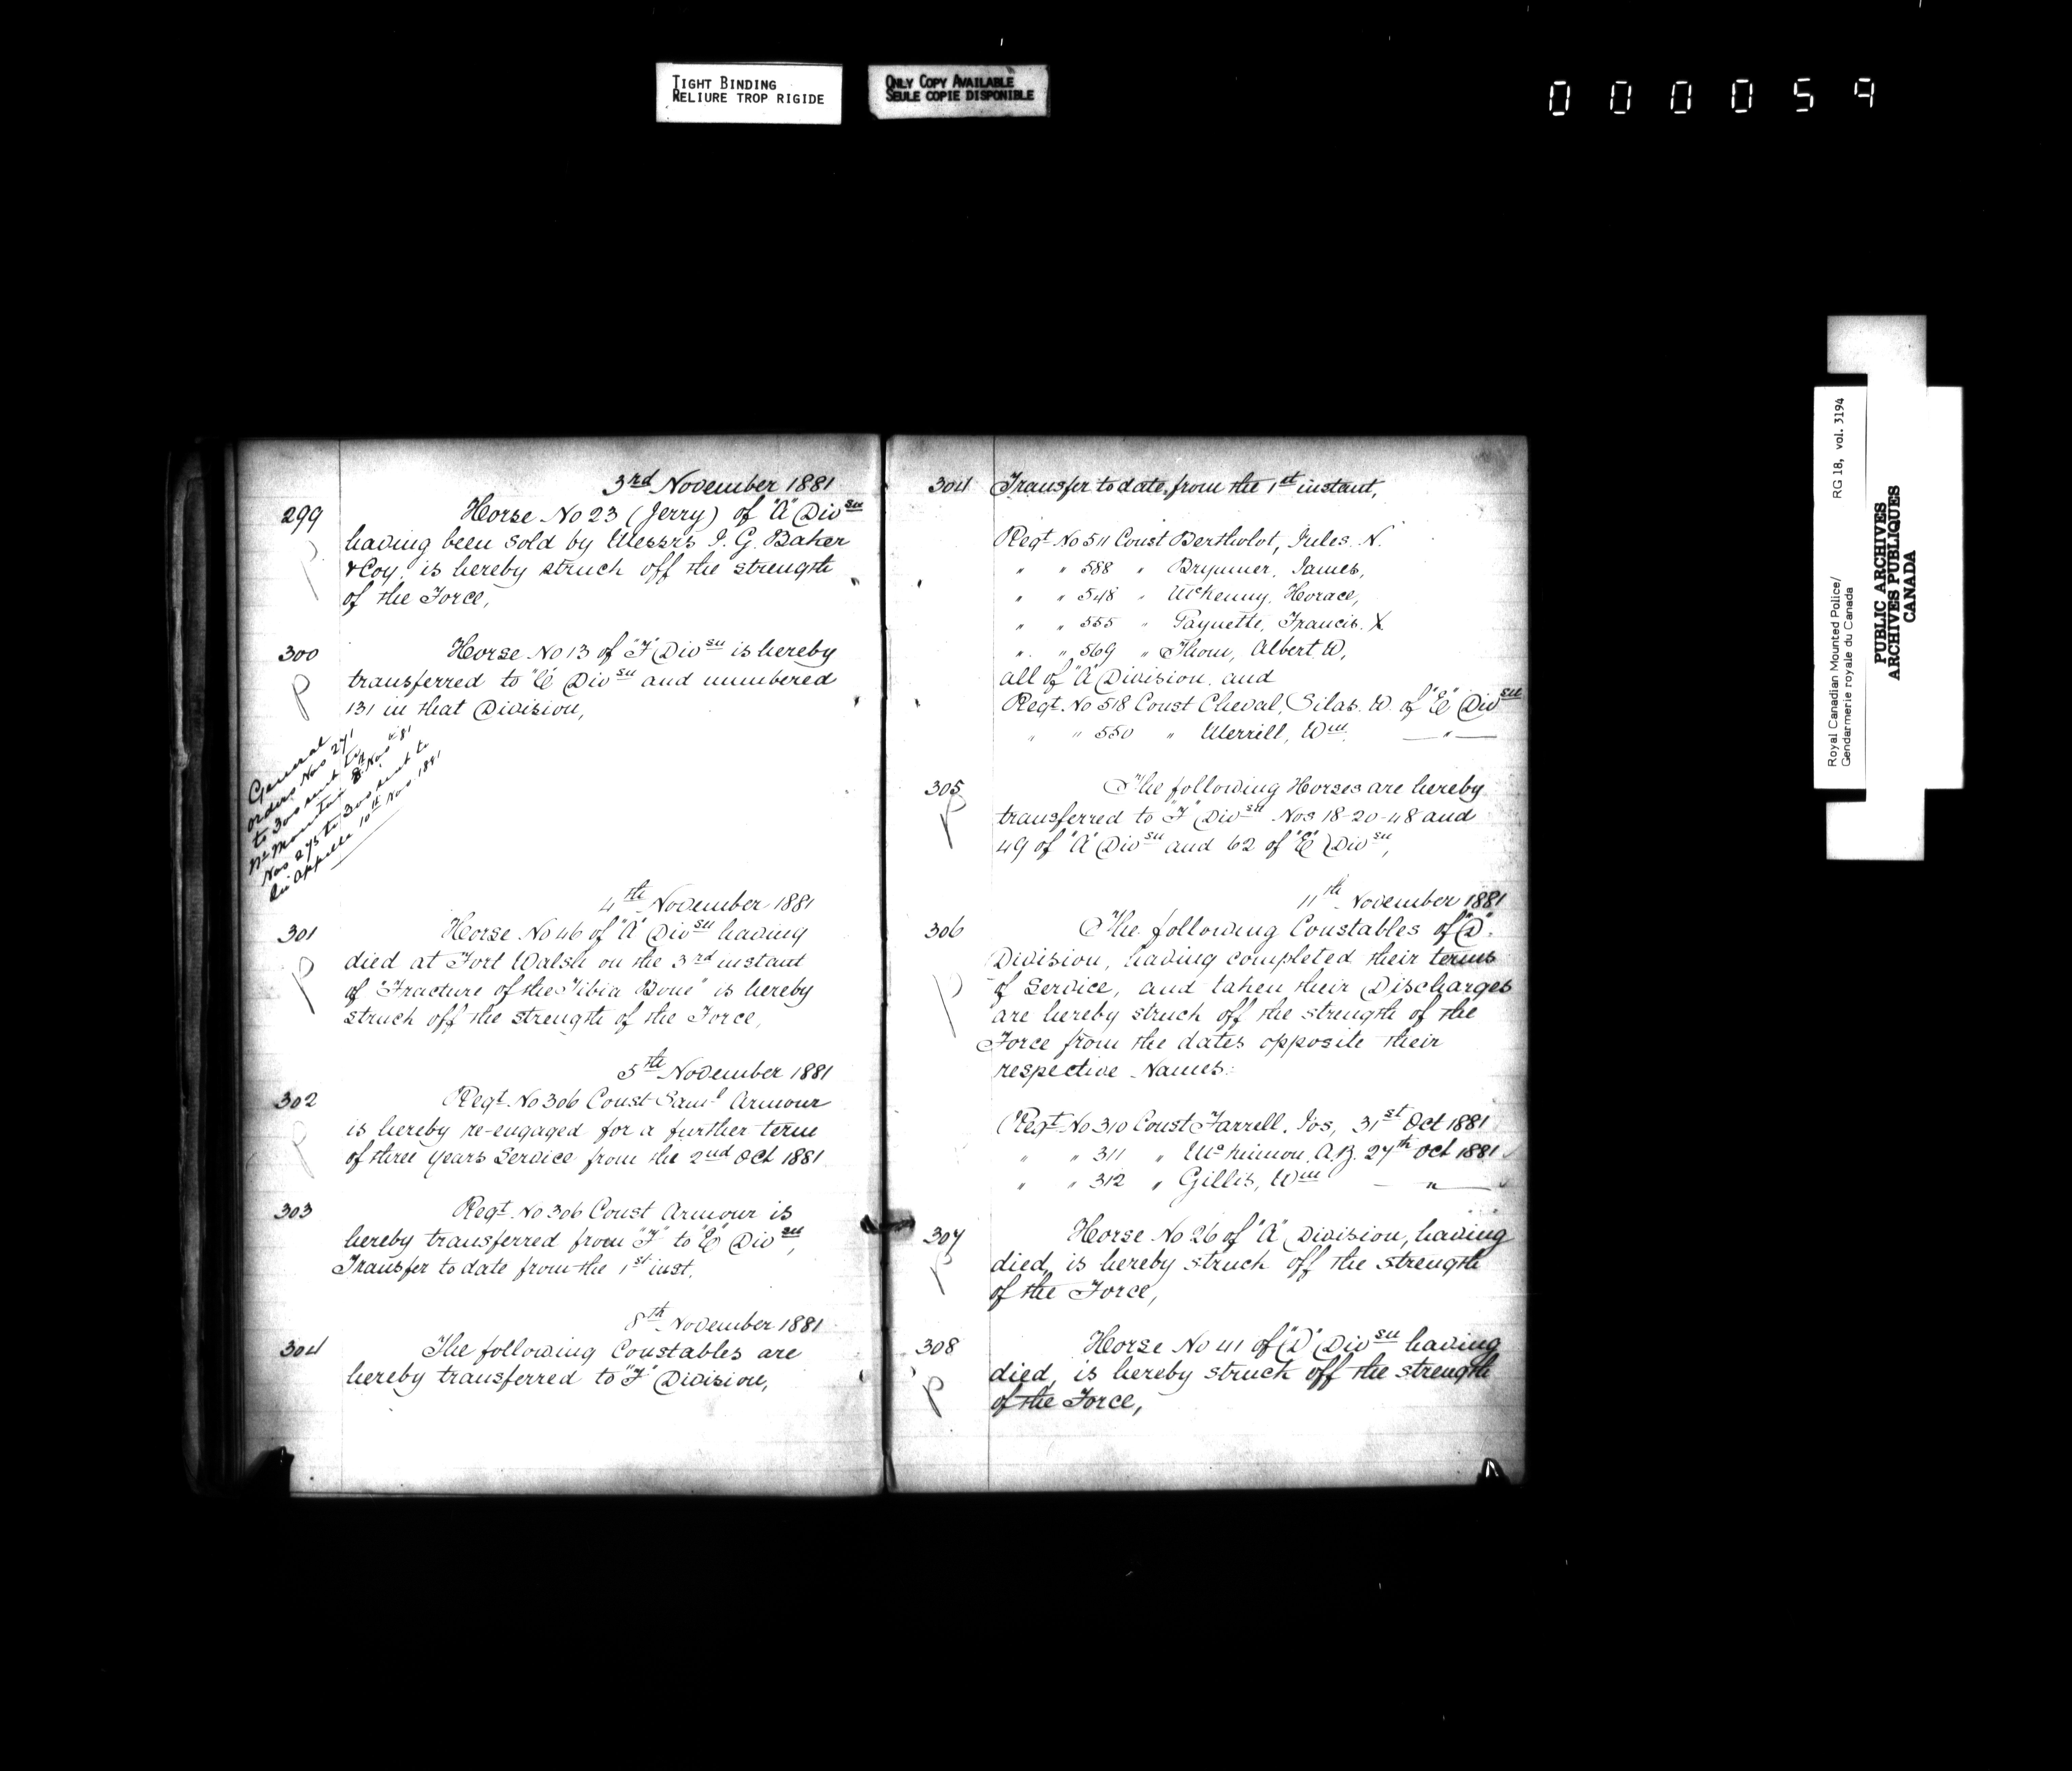 TIGHT BINDING
RELIURE TROP RIGIDE
ONLY COPY AVAILABLE
SEULE COPIE DISPONIBLE
000059
3rd November 1881
299 Horse No 23 (Jerry) of "A" Divsn
having been sold by Messrs I. G. Baker
& Coy. is hereby struck off the strength
of the Force,
P
300 Horse No 13 of "F" Divsn is hereby
transferred to "E" Divsn and numbered
131 in that Division,
P
General
orders Nos 271
to 300 sent
Mountain 8 Nov 81
Nos 275 to 300 sent to
Qu'Appelle 10th Nov 1881
4th November 1881
301 Horse No 46 of "A" Divsn having
died at Fort Walsh on the 3rd instant
of "Fracture of the Tibia Bone" is hereby
struck off the strength of the Force,
P
5th November 1881
302 Regt. No 306 Const Saml Armour
is hereby re-engaged for a further term
of three years Service from the 2nd Oct 1881
P
303 Regt. No 306 Const Armour is
hereby transferred from "F" to "E" Divsn,
Transfer to date from the 1st inst.
8th November 1881
304 The following Constables are
hereby transferred to "F" Division,
304 Transfer to date from the 1st instant,
Regt No 511 Const Bertholot, Jules. N.
" " 588 " Brymner, James,
" " 548 " McKenny, Horace,
" " 555 " Payuette, Francis. X
" " 569 " Thom, Albert W,
all of "A" Division. and
Regt. No 518 Const Cheval, Silas. W. of "E" Divsn
" " 550 " Merrill, Wm. — " —
305 The following Horses are hereby
transferred to "F" Divsn Nos 18-20-48 and
49 of "A" Divsn and 62 of "E" Divsn,
P
11th November 1881
306 The following Constables of "D".
Division, having completed their terms
of Service, and taken their Discharges
are hereby struck off the strength of the
Force from the dates opposite their
respective Names:
P
Regt No 310 Const Farrell. Jos, 31st Oct 1881
" " 311 " McKinnon, A.B. 27th Oct 1881
" " 312 " Gillis, Wm — " —
307 Horse No 26 of "A" Division, having
died, is hereby struck off the strength
of the Force,
P
308 Horse No 41 of "D" Divsn having
died, is hereby struck off the strength
of the Force,
P
Royal Canadian Mounted Police/
Gendarmerie royale du Canada
RG 18, vol. 3194
PUBLIC ARCHIVES
ARCHIVES PUBLIQUES
CANADA